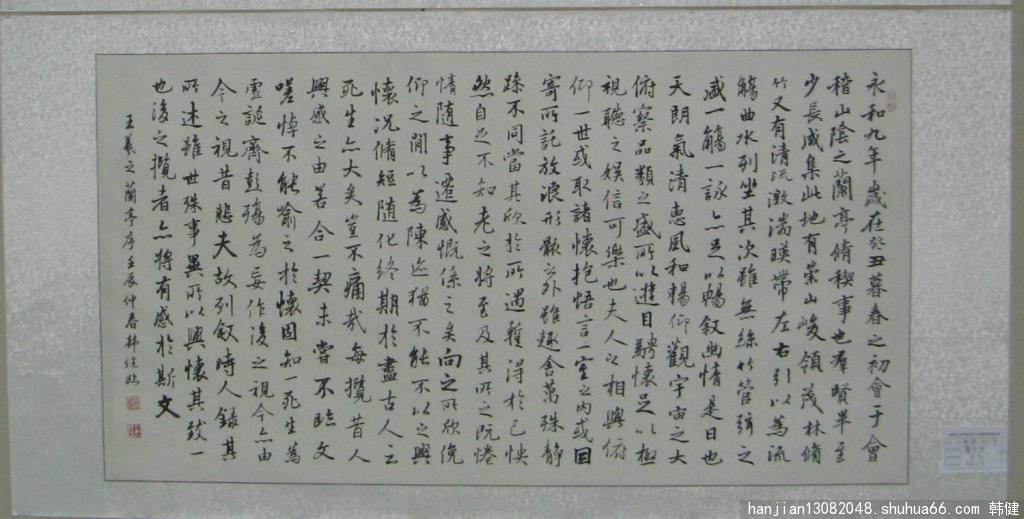 永和九年歲在癸丑暮春之初會于會
稽山陰之蘭亭脩稧事也羣賢畢至
少長咸集此地有崇山峻領茂林脩
竹又有清流激湍暎帶左右引以為流
觴曲水列坐其次雖無絲竹管弦之
盛一觴一詠亦足以暢叙幽情是日也
天朗氣清惠風和暢仰觀宇宙之大
俯察品類之盛所以遊目騁懷足以極
視聽之娛信可樂也夫人之相與俯
仰一世或取諸懷抱悟言一室之内或因
寄所託放浪形骸之外雖趣舍萬殊靜
躁不同當其欣於所遇暫得於己怏
然自足不知老之將至及其所之既惓
情隨事遷感慨係之矣向之所欣俛
仰之閒以為陳迹猶不能不以之興
懷況脩短隨化終期於盡古人云
死生亦大矣豈不痛哉每攬昔人
興感之由若合一契未嘗不臨文
嗟悼不能喻之於懷固知一死生為
虛誕齊彭殤為妄作後之視今亦由
今之視昔悲夫故列叙時人錄其
所述雖世殊事異所以興懷其致一
也後之攬者亦將有感於斯文
王羲之蘭亭序壬辰仲春韩健臨
hanjian13082048.shuhua66.com 韩健